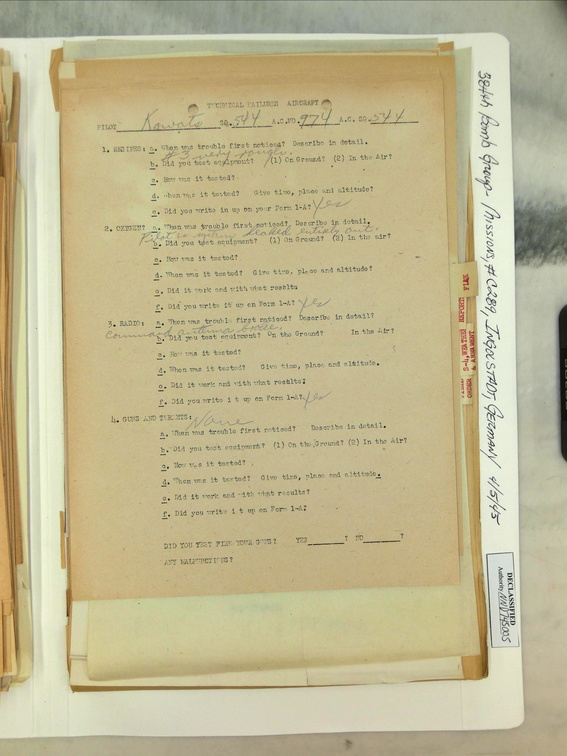 TECHNICAL FAILURES AIRCRAFT
PILOT Kowats SQ. 544 A.C.NO. 974 A.C. SQ. 544
1. ENGINES: a. When was trouble first noticed? Describe in detail.
#3 very rough.
b. Did you test equipment? (1) On Ground? (2) In the Air?
c. How was it tested?
d. When was it tested? Give time, place and altitude?
e. Did you write in up on your Form 1-A? Yes
2. OXYGEN: a. When was trouble first noticed? Describe in detail.
Pilot's system leaked entirely out.
b. Did you test equipment? (1) On Ground? (2) In the air?
c. How was it tested?
d. When was it tested? Give time, place and altitude?
e. Did it work and with what results
f. Did you write it up on Form 1-A? Yes
3. RADIO: a. When was trouble first noticed? Describe in detail?
Command antenna broke.
b. Did you test equipment? On the Ground? In the Air?
c. How was it tested?
d. When was it tested? Give time, place and altitude.
e. Did it work and with what results?
f. Did you write it up on Form 1-A? Yes
4. GUNS AND TURRETS: None
a. When was trouble first noticed? Describe in detail.
b. Did you test equipment? (1) On the Ground? (2) In the Air?
c. How was it tested?
d. When was it tested? Give time, place and altitude.
e. Did it work and with what results?
f. Did you write it up on Form 1-A?
DID YOU TEST FIRE YOUR GUNS? YES ? NO ?
ANY MALFUNCTIONS?
S-4, WEATHER REPORT PLAN
ORDER & ARMAMENT
384th Bomb Group - Missions, #289, INGOLSTADT, GERMANY 4/5/45
DECLASSIFIED
Authority NND745005